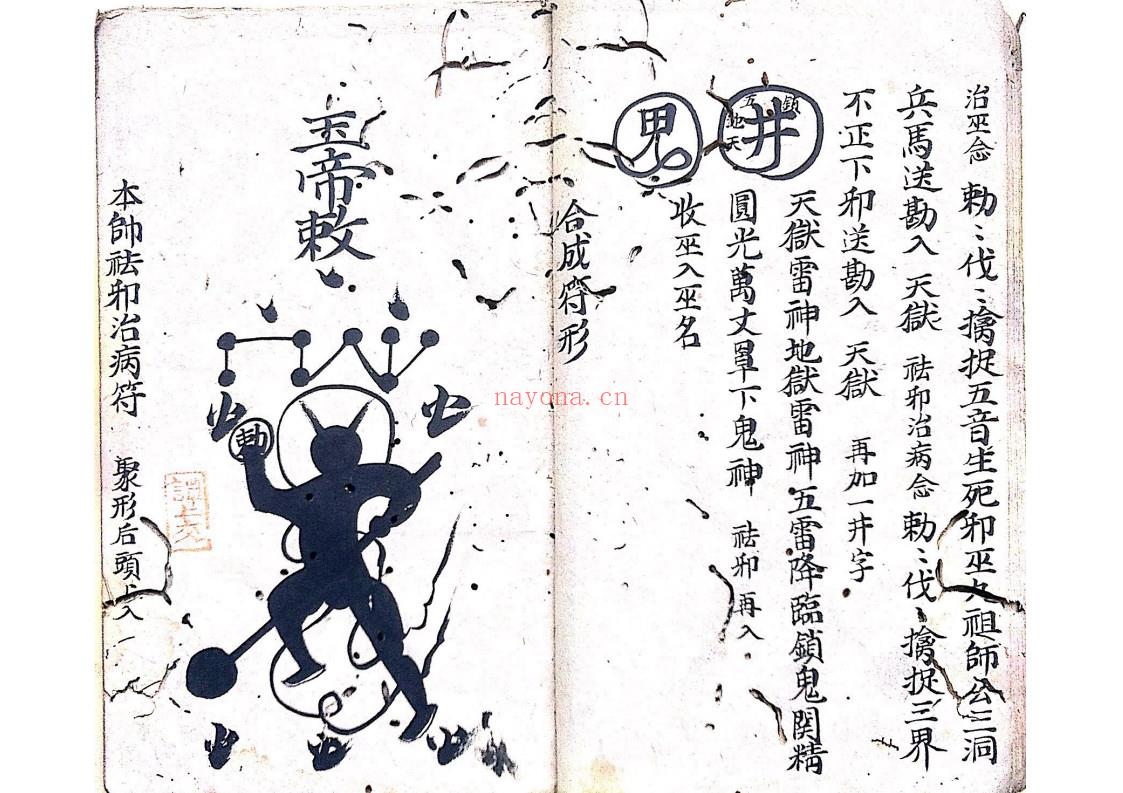 治巫念 勅〻伐〻擒捉五音生死卭巫九祖師公三洞
兵馬送勘入 天獄 祛卭治病念 勅〻伐〻擒捉三界
不正下卭送勘入 天獄 再加一井字
天獄雷神地獄雷神五雷降臨鎖鬼関精
圓光萬丈罩下鬼神 祛卭再入
井 五 鎖 地 天
收巫入巫名
鬼
合成符形
玉帝敕
勅
本帥祛卭治病符 聚形后頭上入一
nayona.cn